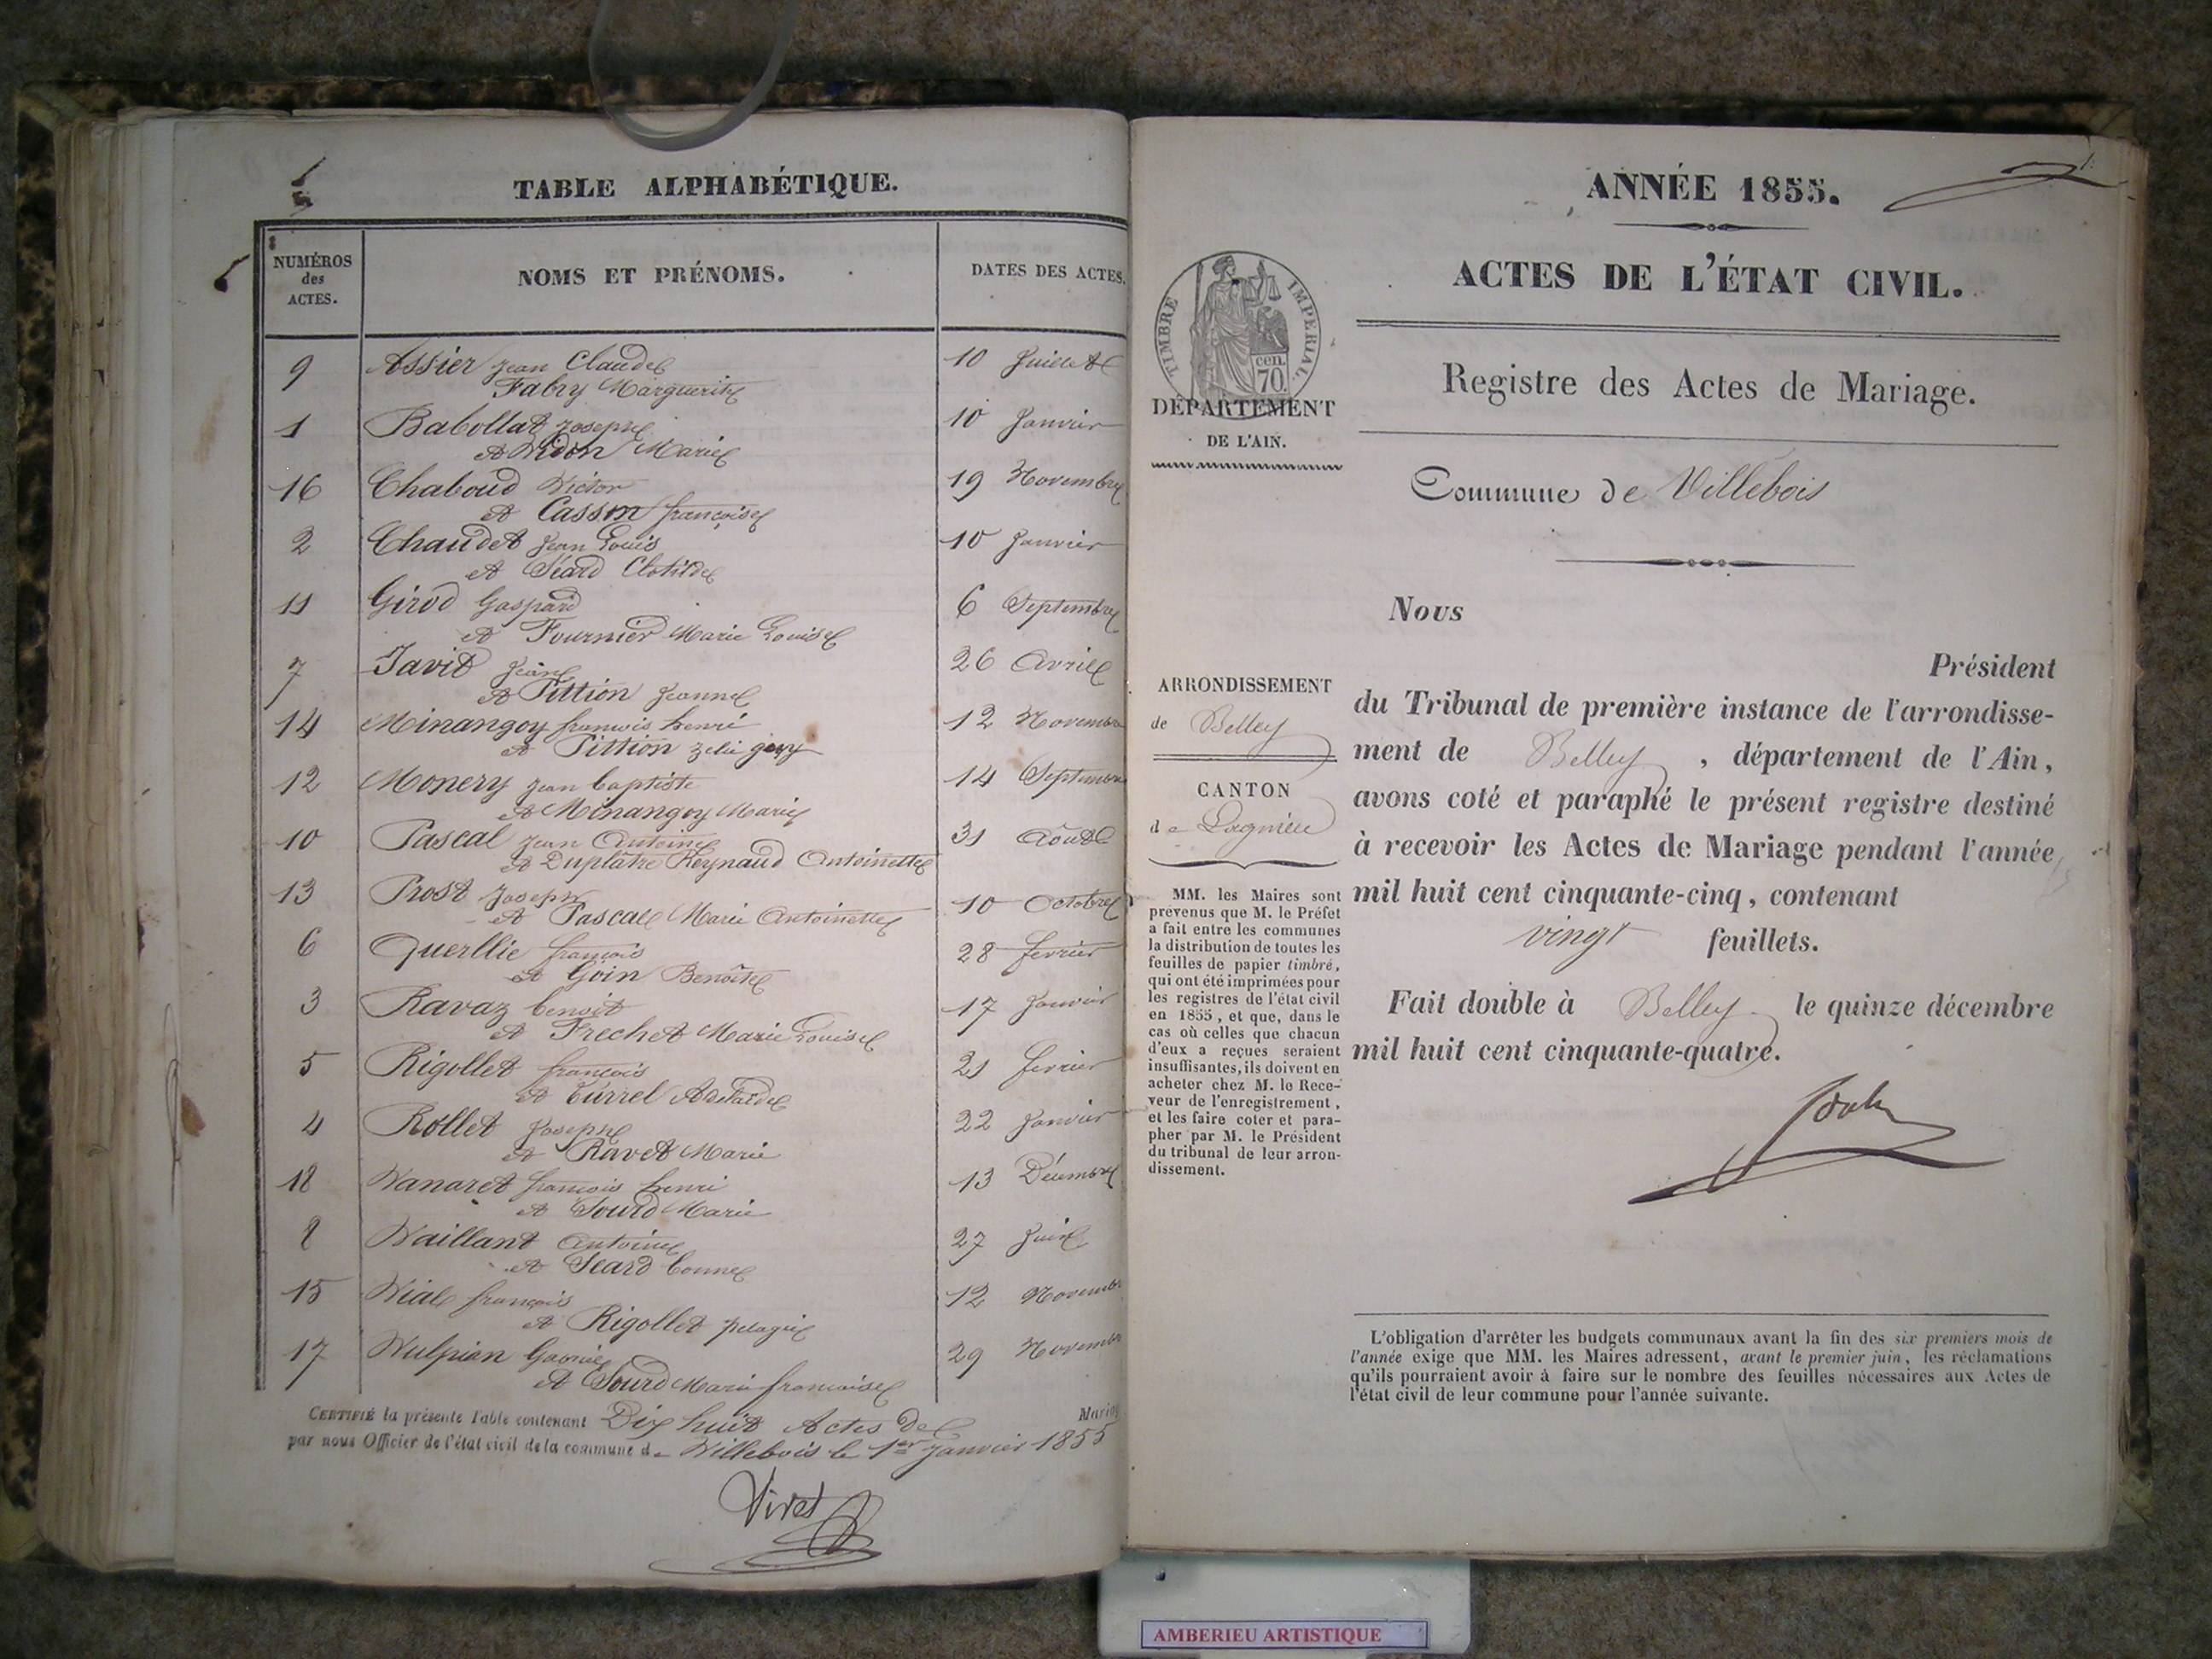 TABLE ALPHABÉTIQUE.
NUMÉROS
des
ACTES.
NOMS ET PRÉNOMS.
DATES DES ACTES.
9 Assier Jean Claude 10 Juillet
Fabry Marguerite
1 Babollat Joseph 10 Janvier
et Vidon Marie
16 Chaboud Victor 19 Novembre
et Cassin françoise
2 Chaudet Jean Louis 10 Janvier
et Séard Clotilde
11 Girod Gaspard 6 Septembre
et Fournier Marie Louise
7 Javit Jean 26 Avril
et Pittion Jeanne
14 Minangoy françois henri 12 Novembre
et Pittion zélie
12 Monery Jean baptiste 14 Septembre
et Minangoy Marie
10 Pascal Jean Antoine 31 Août
et Duplâtre Reynaud Antoinette
13 Prost Joseph 10 Octobre
et Pascal Marie Antoinette
6 Querllie françois 28 février
et Goin Benoîte
3 Ravaz benoit 17 Janvier
et Frechet Marie Louise
5 Rigollet françois 21 février
et Turrel Adélaïde
4 Rollet Joseph 22 Janvier
et Ravet Marie
18 Vanaret françois henri 13 Décembre
et Sourd Marie
8 Vaillant Antoine 27 Juin
et Seard
15 Vial françois 12 Novembre
et Rigollet pelagie
17 Vulpian Gabriel 29 Novembre
et Sourd Marie françoise
CERTIFIÉ la présente Table contenant Dix huit Actes de Mariag
par nous Officier de l'état civil de la commune de Villebois le 1er Janvier 1855
Vivet
1.
ANNÉE 1855.
ACTES DE L'ÉTAT CIVIL.
TIMBRE IMPERIAL.
cen.
70.
DÉPARTEMENT
DE L'AIN.
Registre des Actes de Mariage.
Commune de Villebois
Nous
Président
ARRONDISSEMENT
de Belley
CANTON
de Lagnieu
MM. les Maires sont
prévenus que M. le Préfet
a fait entre les communes
la distribution de toutes les
feuilles de papier timbré,
qui ont été imprimées pour
les registres de l'état civil
en 1855, et que, dans le
cas où celles que chacun
d'eux a reçues seraient
insuffisantes, ils doivent en
acheter chez M. le Rece-
veur de l'enregistrement,
et les faire coter et para-
pher par M. le Président
du tribunal de leur arron-
dissement.
du Tribunal de première instance de l'arrondisse-
ment de Belley, département de l'Ain,
avons coté et paraphé le présent registre destiné
à recevoir les Actes de Mariage pendant l'année
mil huit cent cinquante-cinq, contenant
vingt feuillets.
Fait double à Belley le quinze décembre
mil huit cent cinquante-quatre.
L'obligation d'arrêter les budgets communaux avant la fin des six premiers mois de
l'année exige que MM. les Maires adressent, avant le premier juin, les réclamations
qu'ils pourraient avoir à faire sur le nombre des feuilles nécessaires aux Actes de
l'état civil de leur commune pour l'année suivante.
AMBERIEU ARTISTIQUE